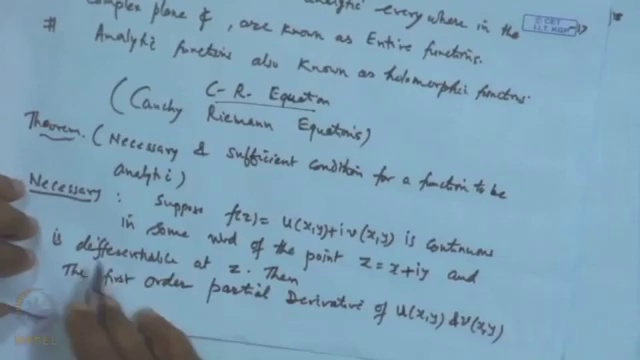 analytic everywhere in the
complex plane ¢, are known as Entire functions.
# Analytic functions also known as holomorphic functns.
C-R. Equation
(Cauchy Riemann Equations)
Theorem. (Necessary & sufficient condition for a function to be
analytic)
Necessary : Suppose f(z) = u(x,y)+iv(x,y) is continuous
in some nbd of the point z = x+iy and
is differentiable at z. Then
The first order partial Derivative of u(x,y) & v(x,y)